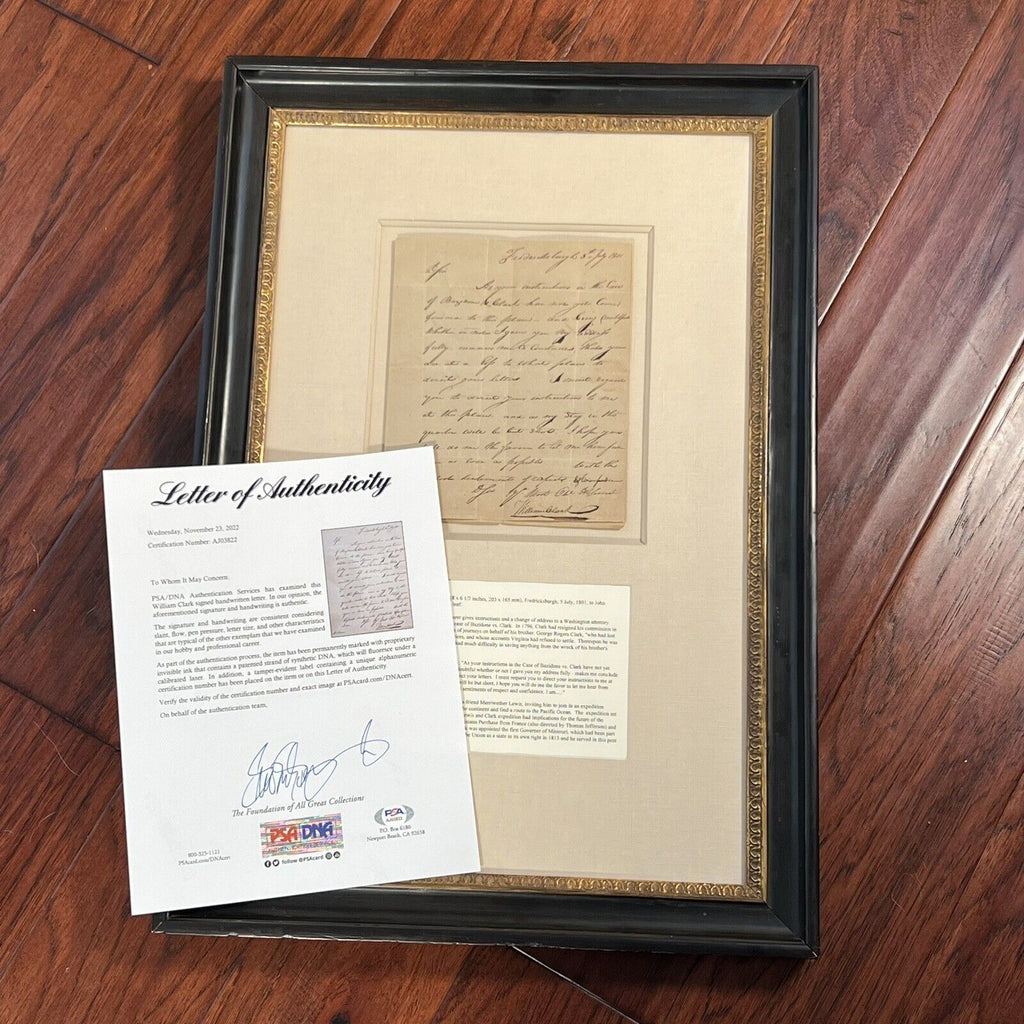 Fredericksburgh 5th July 1801
Sir
As your instructions in the Case
of & Clark have not yet Come
to this place - and
Whether or not I gave you my address
fully makes me Conclude that you
are at a loss to what place to
direct your letters I must request
you to direct your instructions to me
at this place and as my Stay in this
quarter will be but Short. I hope you
will do me the favour to let me hear from
as soon as possible with the
William Clark
Letter of Authenticity
Wednesday, November 23, 2022
Certification Number: AJ03822
To Whom It May Concern:
PSA/DNA Authentication Services has examined this
William Clark signed handwritten letter. In our opinion, the
aforementioned signature and handwriting is authentic.
The signature and handwriting are consistent considering
slant, flow, pen pressure, letter size, and other characteristics
that are typical of the other exemplars that we have examined
in our hobby and professional career.
As part of the authentication process, the item has been permanently marked with proprietary
invisible ink that contains a patented strand of synthetic DNA, which will fluoresce under a
calibrated laser. In addition, a tamper-evident label containing a unique alphanumeric
certification number has been placed on the item or on this Letter of Authenticity.
Verify the validity of the certification number and exact image at PSAcard.com/DNAcert.
On behalf of the authentication team,
The Foundation of All Great Collections
PSA DNA
AUTHENTICATION SERVICES
800-325-1121
PSAcard.com/DNAcert
follow @PSAcard
PSA
AJ03822
P.O. Box 6180
Newport Beach, CA 92658
(8 x 6 1/2 inches, 203 x 165 mm), Fredricksburgh, 5 July, 1801, to John
gives instructions and a change of address to a Washington attorney
of Bazidone vs. Clark. In 1796, Clark had resigned his commission in
of journeys on behalf of his brother George Rogers Clark, "who had lost
and whose accounts Virginia had refused to settle. Thereupon he was
much difficulty in saving anything from the wreck of his brother's
"As your instructions in the Case of Bazidone vs. Clark have not yet
doubtful whether or not I gave you my address fully - makes me conclude
your letters. I must request you to direct your instructions to me at
will be but short, I hope you will do me the favor to let me hear from
sentiments of respect and confidence. I am....."
friend Merriwether Lewis, inviting him to join in an expedition
the continent and find a route to the Pacific Ocean. The expedition set
Lewis and Clark expedition had implications for the future of the
Louisiana Purchase from France (also directed by Thomas Jefferson) and
was appointed the first Governor of Missouri, which had been part
the Union as a state in its own right in 1813 and he served in this post